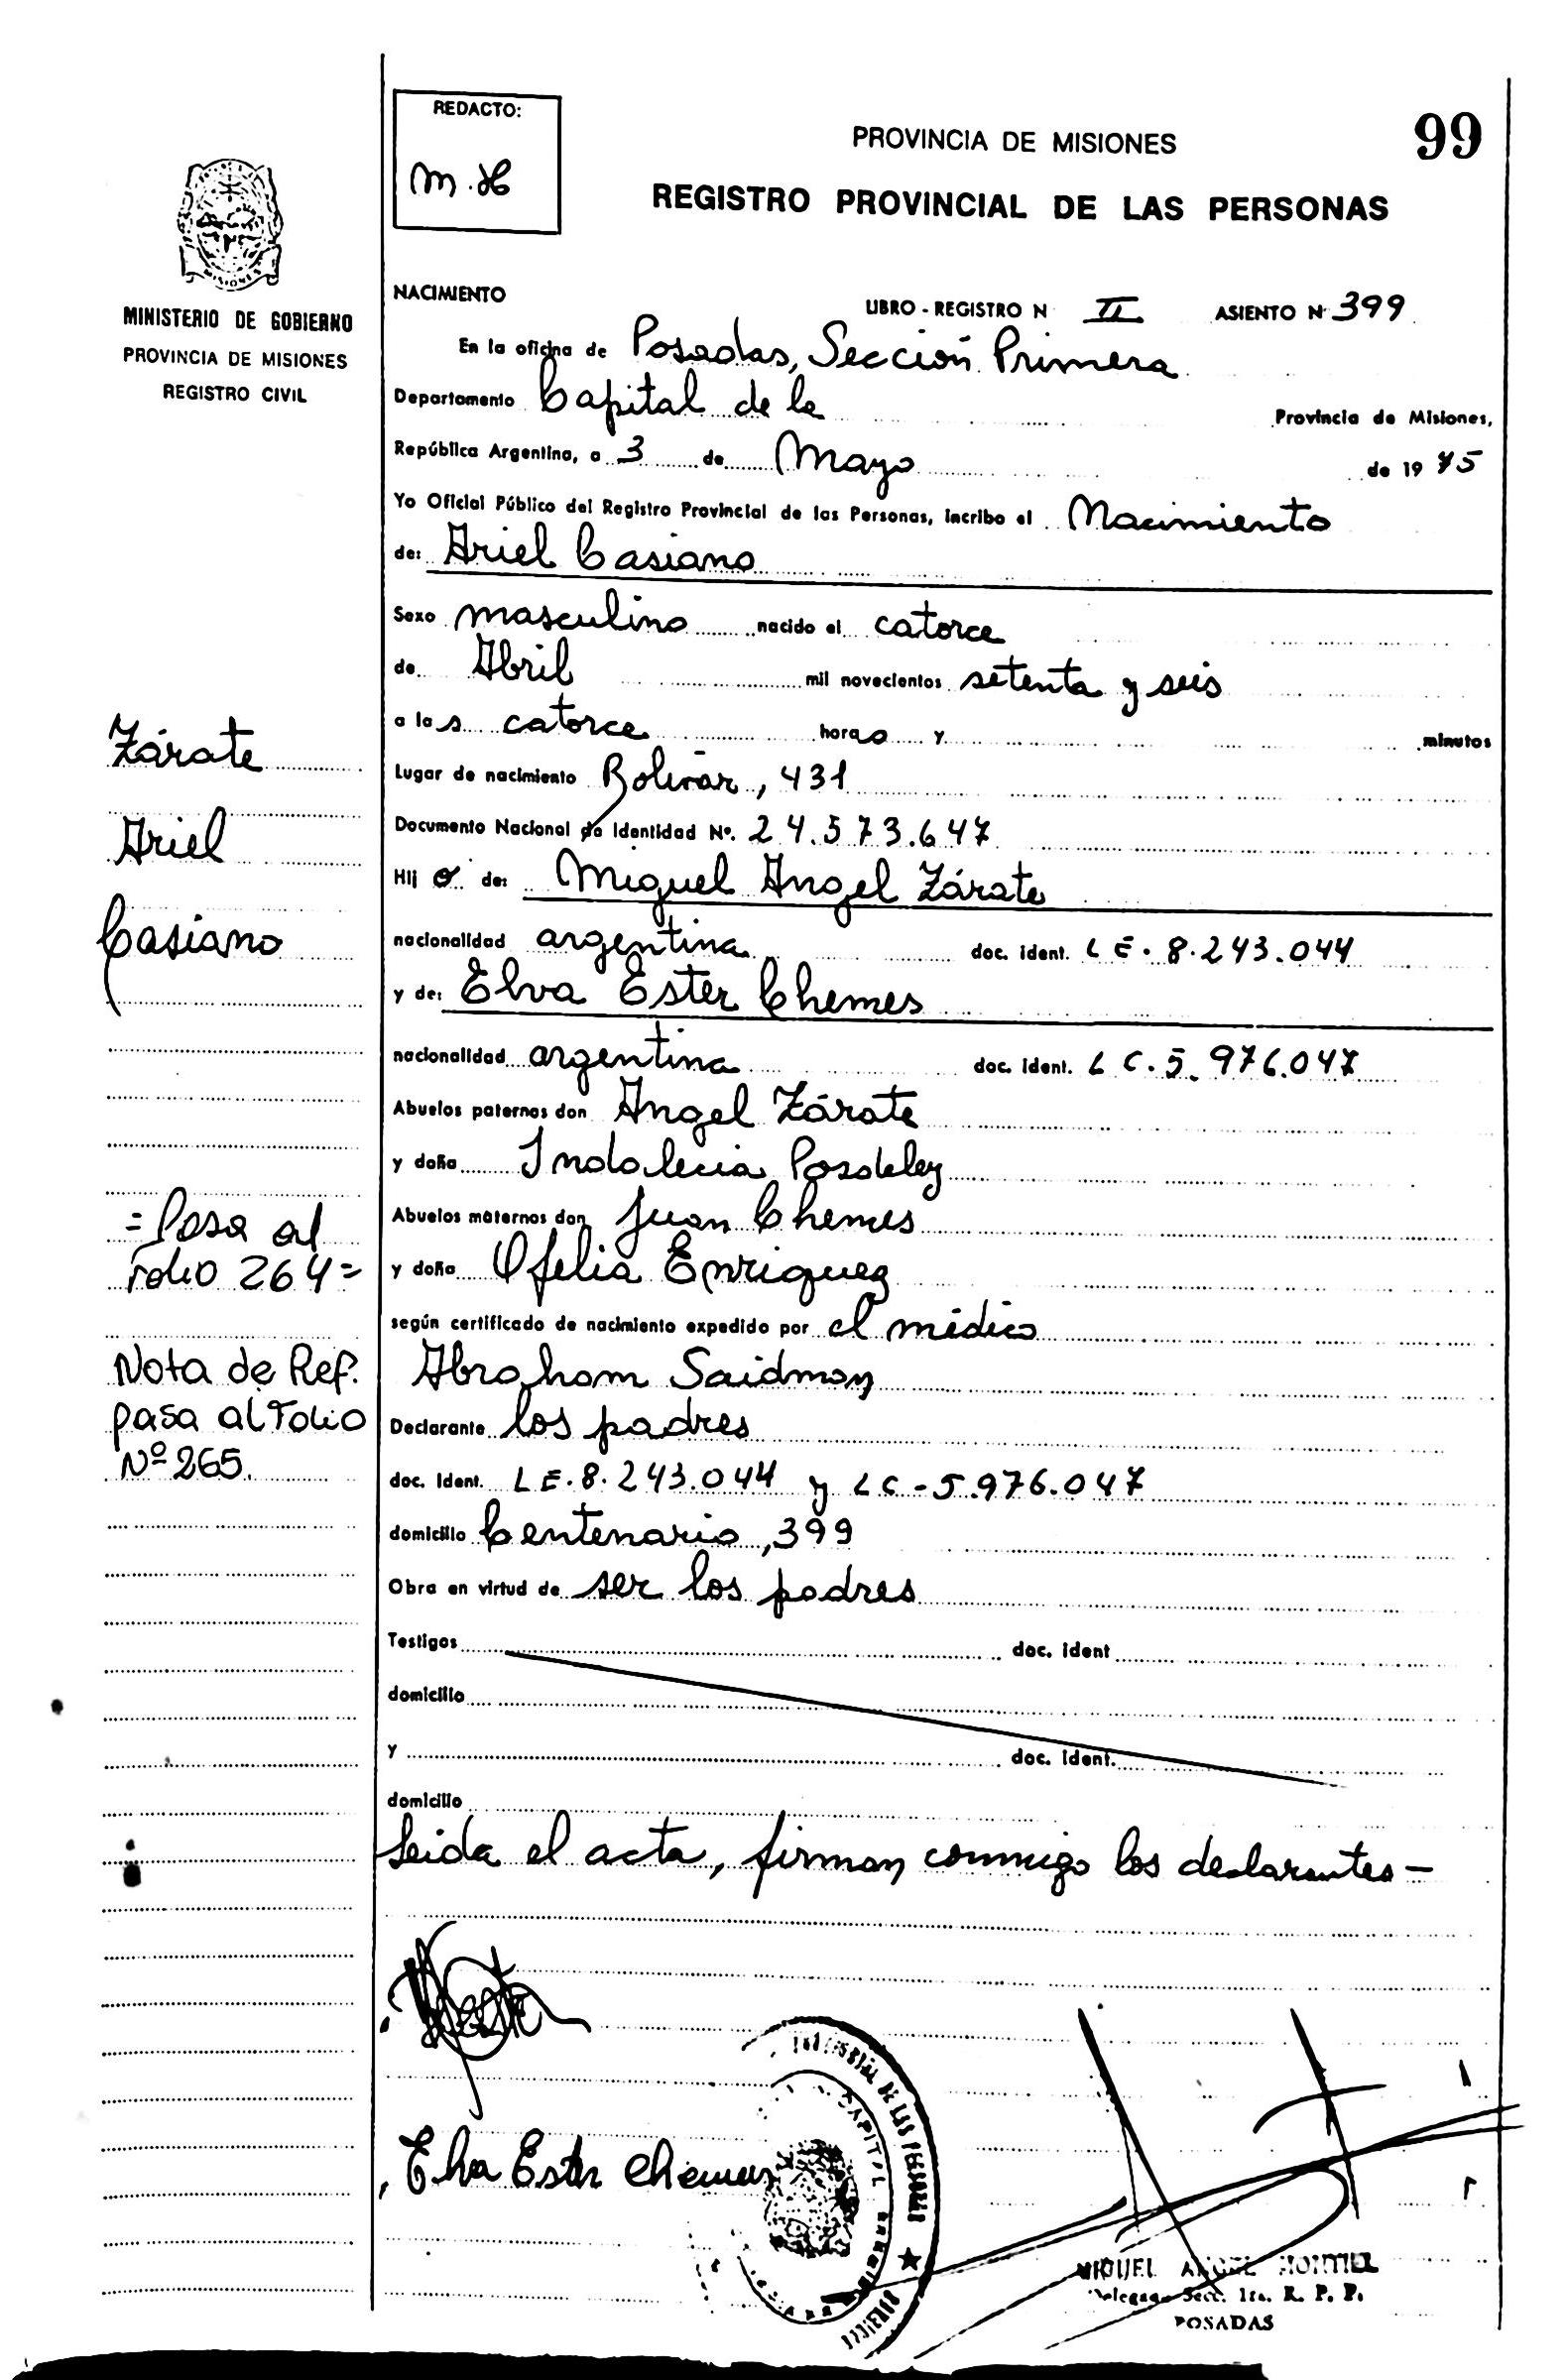 REDACTO:
M.H
PROVINCIA DE MISIONES
99
REGISTRO PROVINCIAL DE LAS PERSONAS
MISIONES
MINISTERIO DE GOBIERNO
PROVINCIA DE MISIONES
REGISTRO CIVIL
NACIMIENTO
LIBRO - REGISTRO N II ASIENTO Nº 399
En la oficina de Posadas, Sección Primera
Departamento Capital de la Provincia de Misiones,
República Argentina, a 3 de Mayo de 1975
Yo Oficial Público del Registro Provincial de las Personas, incribo el Nacimiento
de: Ariel Casiano
Sexo masculino nacido el catorce
de Abril mil novecientos setenta y seis
a las catorce horas y minutos
Lugar de nacimiento Bolívar, 431
Documento Nacional de Identidad Nº. 24.573.647
Hij o de: Miguel Angel Zárate
nacionalidad argentina doc. ident. LE. 8.243.044
y de: Elva Ester Chemes
nacionalidad argentina doc. ident. LC. 5.976.047
Abuelos paternos don Angel Zárate
y doña Indalecia
Abuelos maternos don Juan Chemes
y doña Ofelia Enriquez
según certificado de nacimiento expedido por el médico
Abraham Saidman
Declarante los padres
doc. ident. LE. 8.243.044 y LC - 5.976.047
domicilio Centenario, 399
Obra en virtud de ser los padres
Testigos doc. ident
domicilio
y doc. ident.
domicilio
Leida el acta, firman conmigo los declarantes -
Zárate
Ariel
Casiano
= Pasa al
Folio 264 =
Nota de Ref.
pasa al Folio
Nº 265.
Elva Ester Chemes
DE LAS PERSONAS
CAPITAL
MIGUEL ANGEL MONTIEL
Delegado Secc. 1ra. R. P. P.
POSADAS